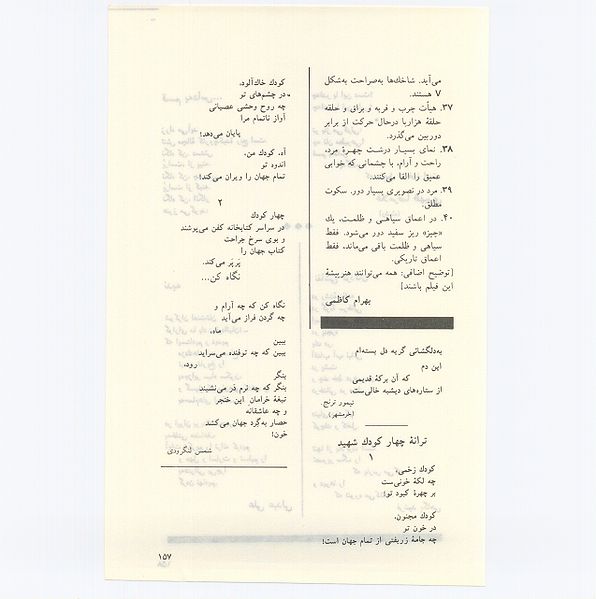 می‌آید. شاخک‌ها به‌صراحت به‌شکل
V هستند.
۳۷. هیأت چرب و فربه و براق و حلقه
حلقهٔ هزارپا درحال حرکت از برابر
دوربین می‌گذرد.
۳۸. نمای بسیار درشت چهرهٔ مرد،
راحت و آرام، با چشمانی که خوابی
عمیق را القا می‌کنند.
۳۹. مرد در تصویری بسیار دور. سکوت
مطلق.
۴۰. در اعماق سیاهی و ظلمت، یك
«چیز» ریز سفید دور می‌شود. فقط
سیاهی و ظلمت باقی می‌ماند، فقط
اعماق تاریکی.
[توضیح اضافی: همه می‌توانند هنرپیشهٔ
این فیلم باشند]
بهرام کاظمی
به‌دلگشائی گریه دل بسته‌ام
این دم
که آن برکهٔ قدیمی
از ستاره‌های دیشبه خالی‌ست.
تیمور ترنج
(خرمشهر)
ترانهٔ چهار کودك شهید
۱
کودك زخمی،
چه لکهٔ خونی‌ست
بر چهرهٔ کبود تو!
کودك مجنون،
در خون تو
چه جامهٔ زربفتی از تمام جهان است!
کودك خاك‌آلود،
در چشم‌های تو
چه روح وحشی عصیانی
آواز ناتمام مرا
پایان می‌دهد!
آه، کودك من،
اندوه تو
تمام جهان را ویران می‌کند!
۲
چهار کودك
در سراسر کتابخانه کفن می‌پوشند
و بوی سرخ جراحت
کتاب جهان را
پَرپَر می‌کند.
نگاه کن...
نگاه کن که چه آرام و
چه گردن فراز می‌آید
ماه،
ببین
ببین که چه توفنده می‌سراید
رود،
بنگر
بنگر که چه نرم در می‌نشیند
تیغهٔ خرامان این خنجر
و چه عاشقانه
حصار به‌گِرد جهان می‌کشد
خون!
شمس لنگرودی
۱۵۷